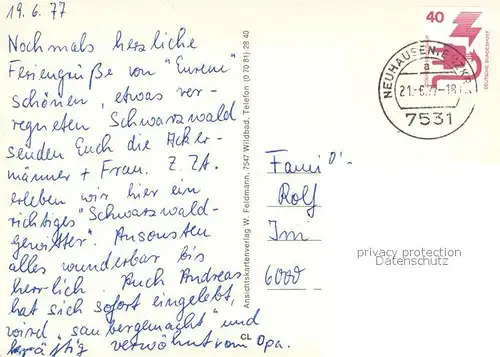 19.6.77
Nochmals herzliche
Feriengrüße von "Eurem"
schönen, etwas ver-
regneten Schwarzwald
senden Euch die Acker-
männer + Frau. Z. Zt.
erleben wir hier ein
richtiges "Schwarzwald-
gewitter". Ansonsten
alles wunderbar bis
herrlich. Auch Andreas
hat sich sofort eingelebt,
wird "saubergemacht" und
kräftig verwöhnt vom Opa.
Ansichtskartenverlag W. Feldmann, 7547 Wildbad, Telefon (0 70 81) 28 40
CL
40
DEUTSCHE BUNDESPOST
NEUHAUSEN
a
21.-6.77-18
7531
Fami
Rolf
Im
6000
privacy protection
Datenschutz